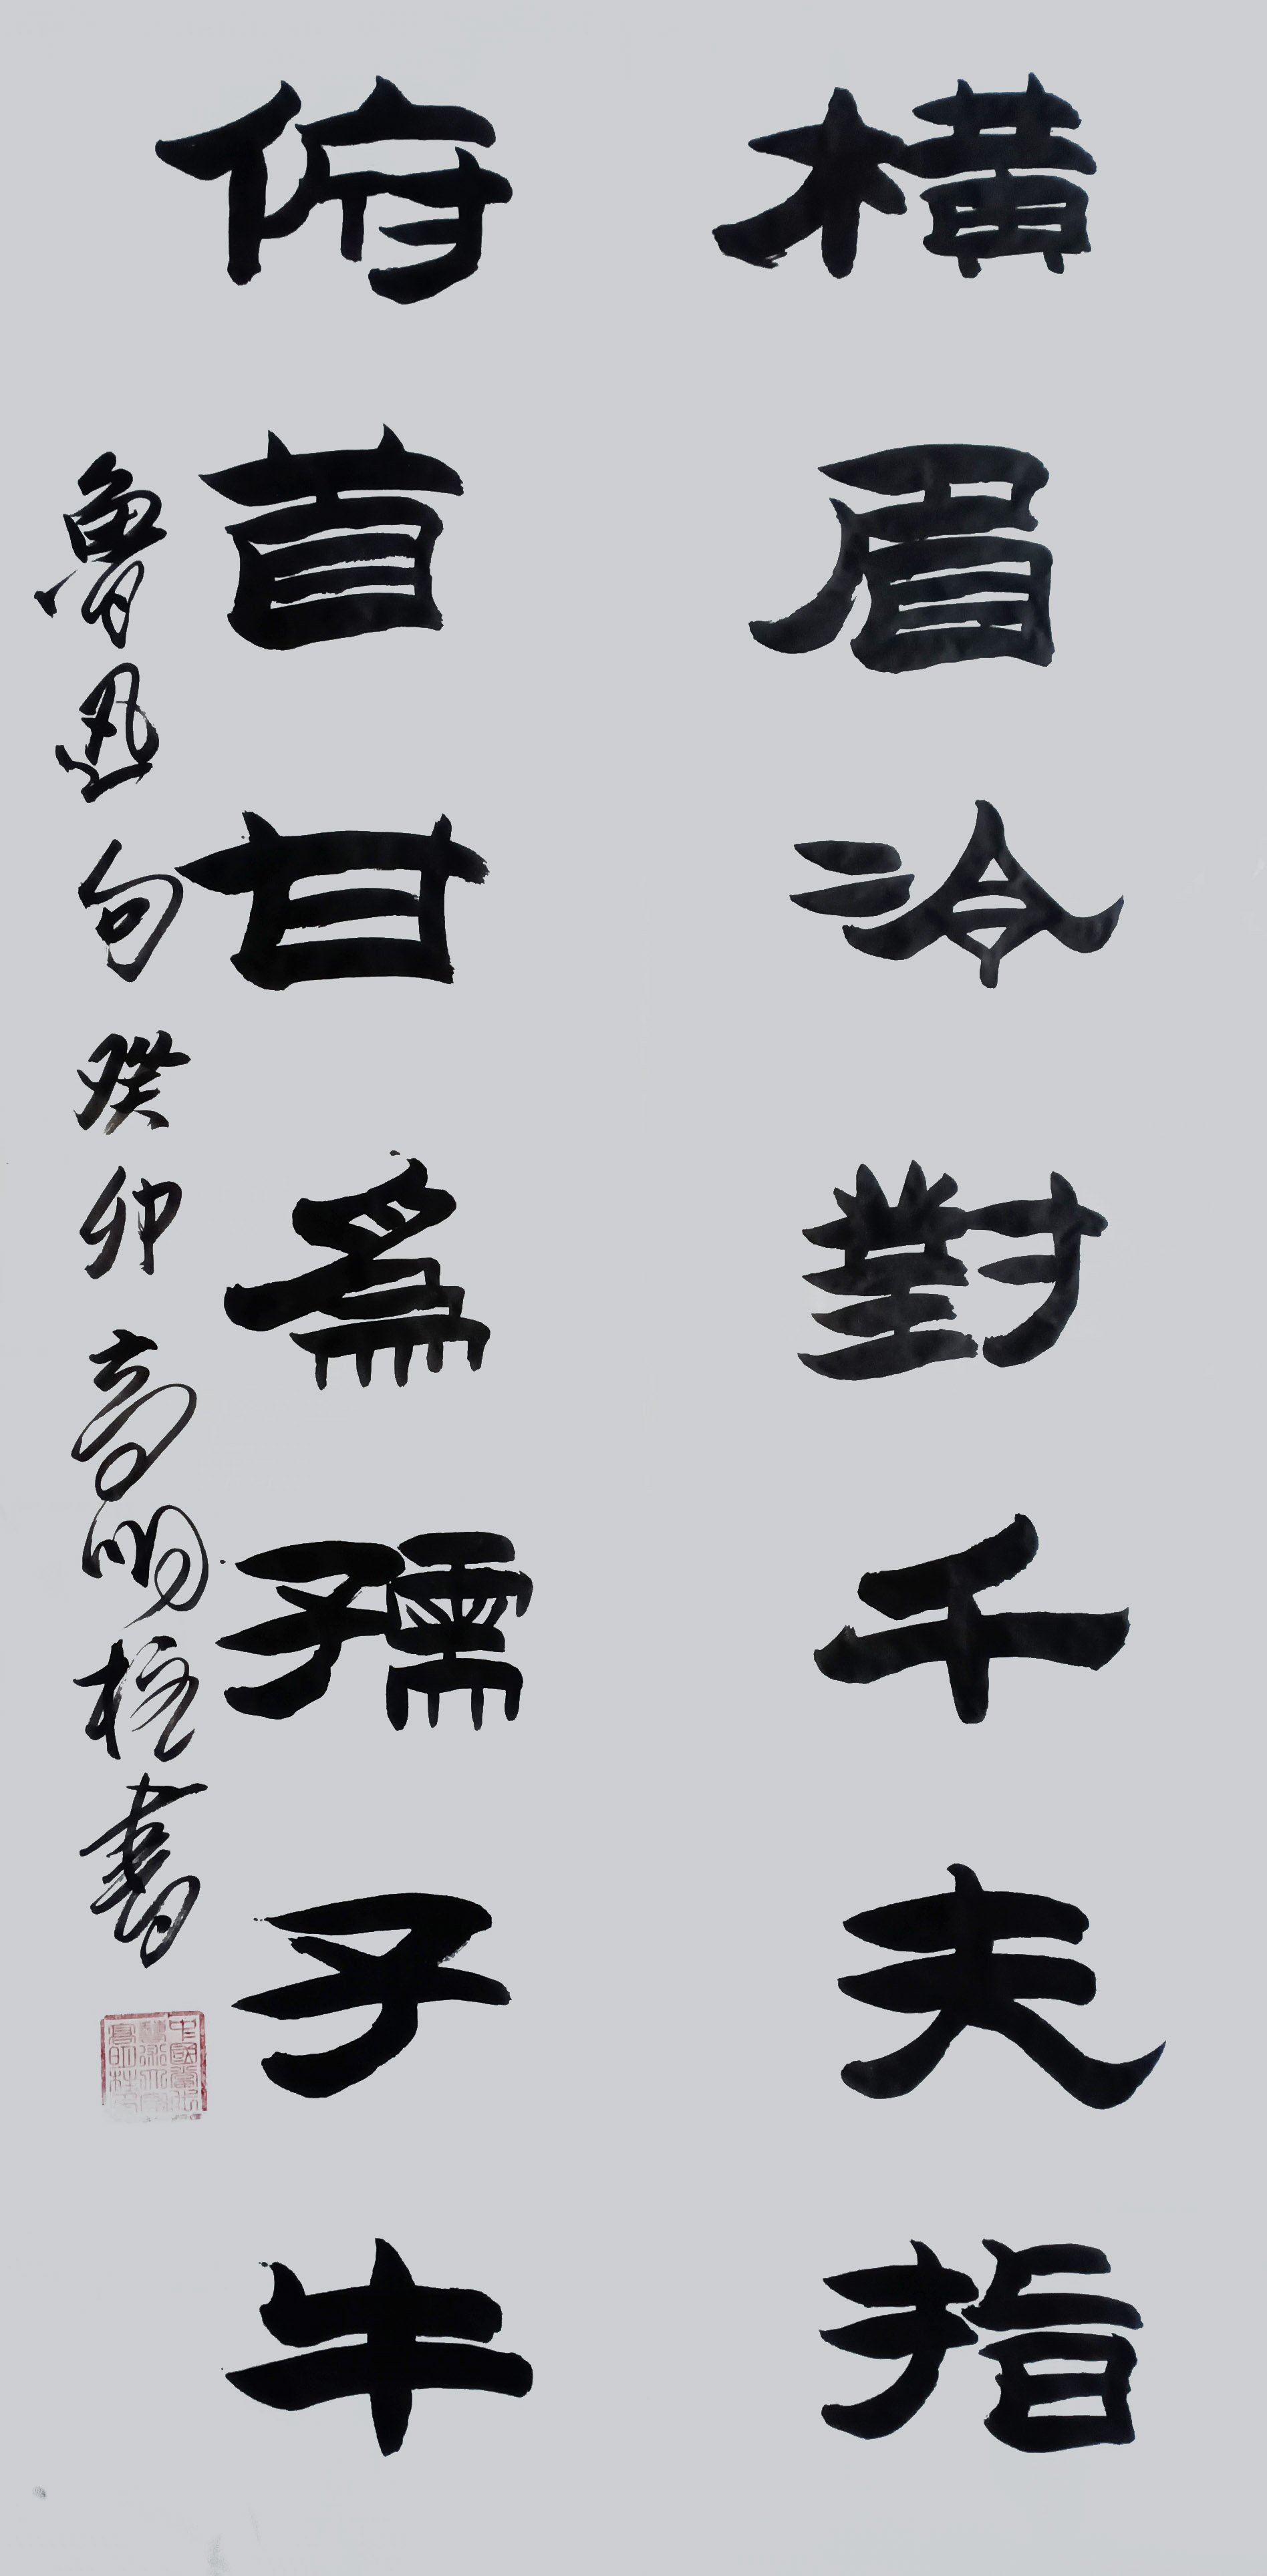 橫眉冷對千夫指
俯首甘爲孺子牛
魯迅句癸卯高明柱書